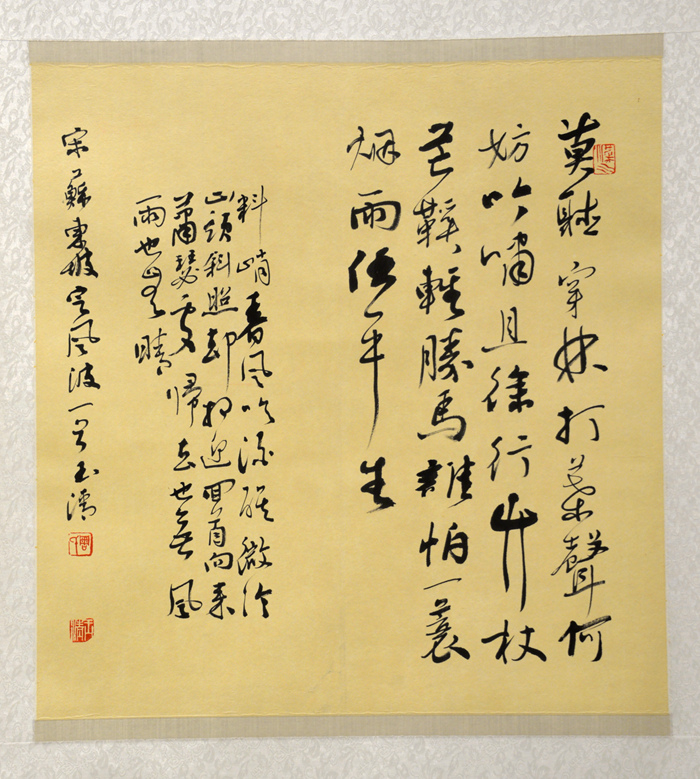 莫聽穿林打葉聲何
妨吟嘯且徐行竹杖
芒鞋輕勝馬誰怕一蓑
烟雨任平生
料峭春風吹酒醒微冷
山頭斜照却相迎回首向来
蕭瑟處歸去也無風
雨也無晴
宋蘇東坡定風波一首玉濡